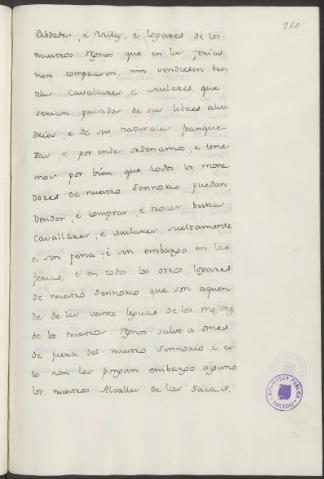 260
Cibdades, é Villas, é logares de los
nuestros Rgnos que en las ferias
non comprasen, nin vendiesen bes
tias Cavallares, é mulares, que
serian privados de sus libres alve
drios, é de su naturales franque
zas, é por ende ordenamos, é tene
mos por bien, que todos los mora
dores de nuestro Sennorio puedan
vender, é comprar, é trocar bestias
Cavallares, é mulares sueltamente
é sin pena, é sin embargo en las
ferias, é en todos los otros logares
de nuestro Sennorio que son aquen
de de las veinte leguas de los mojones
de los nuestros Rgnos salvo á omes
de fuera del nuestro Sennorio, é en
lo non les pongan embargo alguno
los nuestros Alcalles de las Sacas,
BIBLIOTECA PÚBLICA
TOLEDO